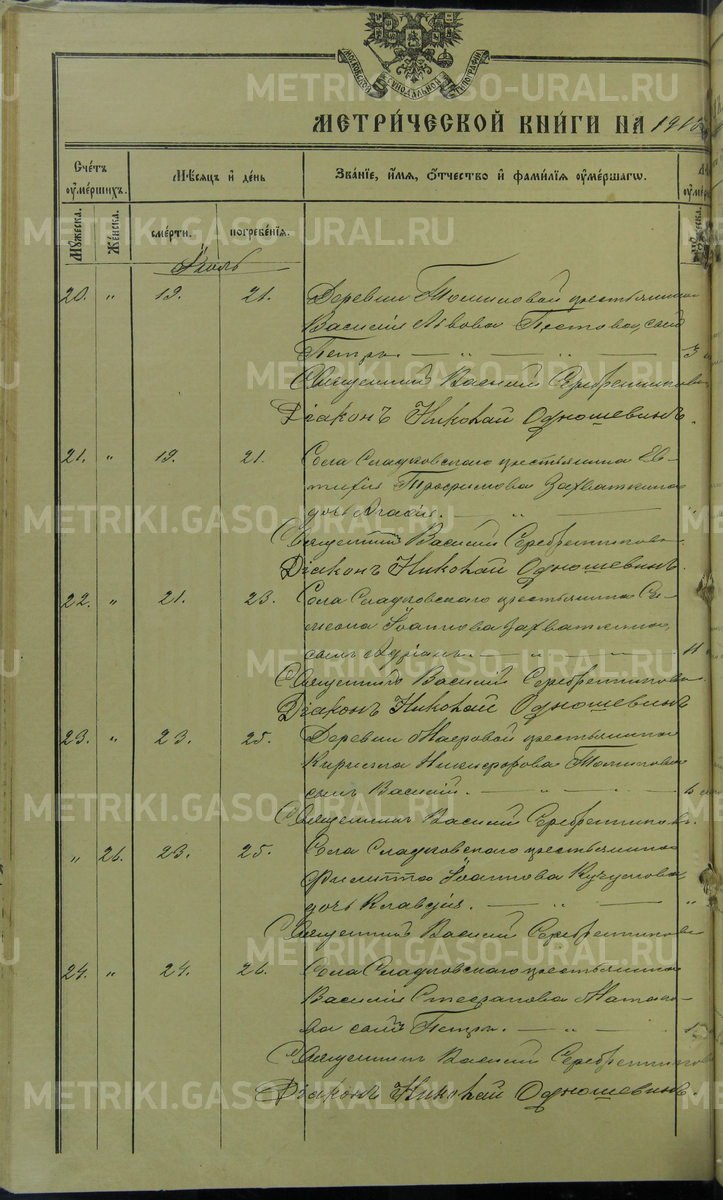 МОСКОВСКОЙ СѴНОДАЛЬНОЙ ТИПОГРАФІИ
МЕТРИ́ЧЕСКОЙ КНИ́ГИ НА 191
Счétъ ѹме́ршихъ.
Мѣ́сяцъ и҆ де́нь
Зва́нїе, и҆́мѧ, ѻ҆́тчество и҆ фами́лїѧ ѹ҆ме́ршагѡ.
Мꙋ́жеска. Же́нска. сме́рти. погребе́нїѧ.
Іюль
20. " 19. 21. Деревни Томиловой крестьянина
Василія Львова Пестова, сынъ
Петръ.
Священникъ Василій Серебренниковъ
Діаконъ Николай Одношевинъ.
21. " 19. 21. Села Сладковскаго крестьянина Ев-
тифія Трофимова Захваткина
дочь
Священникъ Василій Серебренниковъ
Діаконъ Николай Одношевинъ.
22. " 21. 23. Села Сладковскаго крестьянина Си-
меона Іоаннова Захваткина,
сынъ
11
Священникъ Василій Серебренниковъ
Діаконъ Николай Одношевинъ
23. " 23. 25. Деревни Макаровой крестьянина
Кирилла Никифорова Томилова
сынъ Василій.
Священникъ Василій Серебренниковъ.
" 26. 23. 25. Села Сладковскаго крестьянина
Филиппа Іоаннова
дочь Клавдія.
Священникъ Василій Серебренниковъ
24. " 24. 26. Села Сладковскаго крестьянина
Василія Стефанова
сынъ Петръ.
Священникъ Василій Серебренниковъ
Діаконъ Николай Одношевинъ.
METRIKI.GASO-URAL.RU